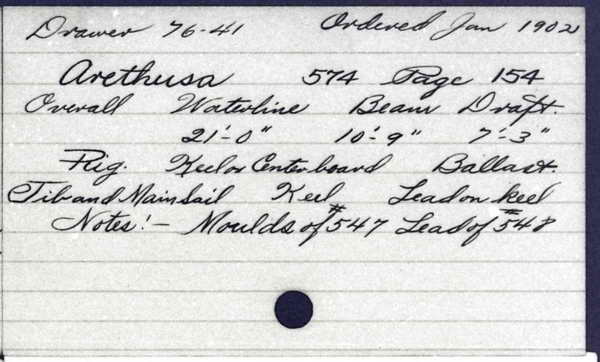 Drawer 76-41 Ordered Jan 1902
Arethusa 574 Page 154
Overall Waterline Beam Draft.
21'-0" 10'-9" 7'-3"
Rig. Keel or Centerboard Ballast.
Jib and Mainsail Keel Lead on keel
Notes:- Moulds of #547 Lead of #548